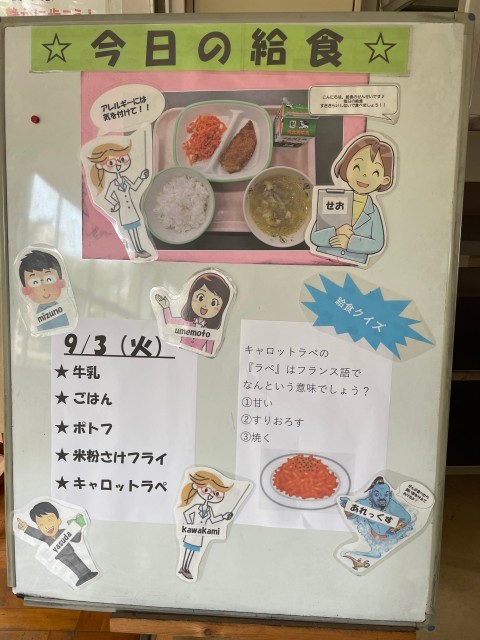 ☆今日の給食☆
アレルギーには
気を付けて！！
せお
mizuno
umemoto
給食クイズ
9/3（火）
★牛乳
★ごはん
★ポトフ
★米粉さけフライ
★キャロットラペ
キャロットラペの
『ラペ』はフランス語で
なんという意味でしょう？
①甘い
②すりおろす
③焼く
yasuda
kawakami
あれっくす